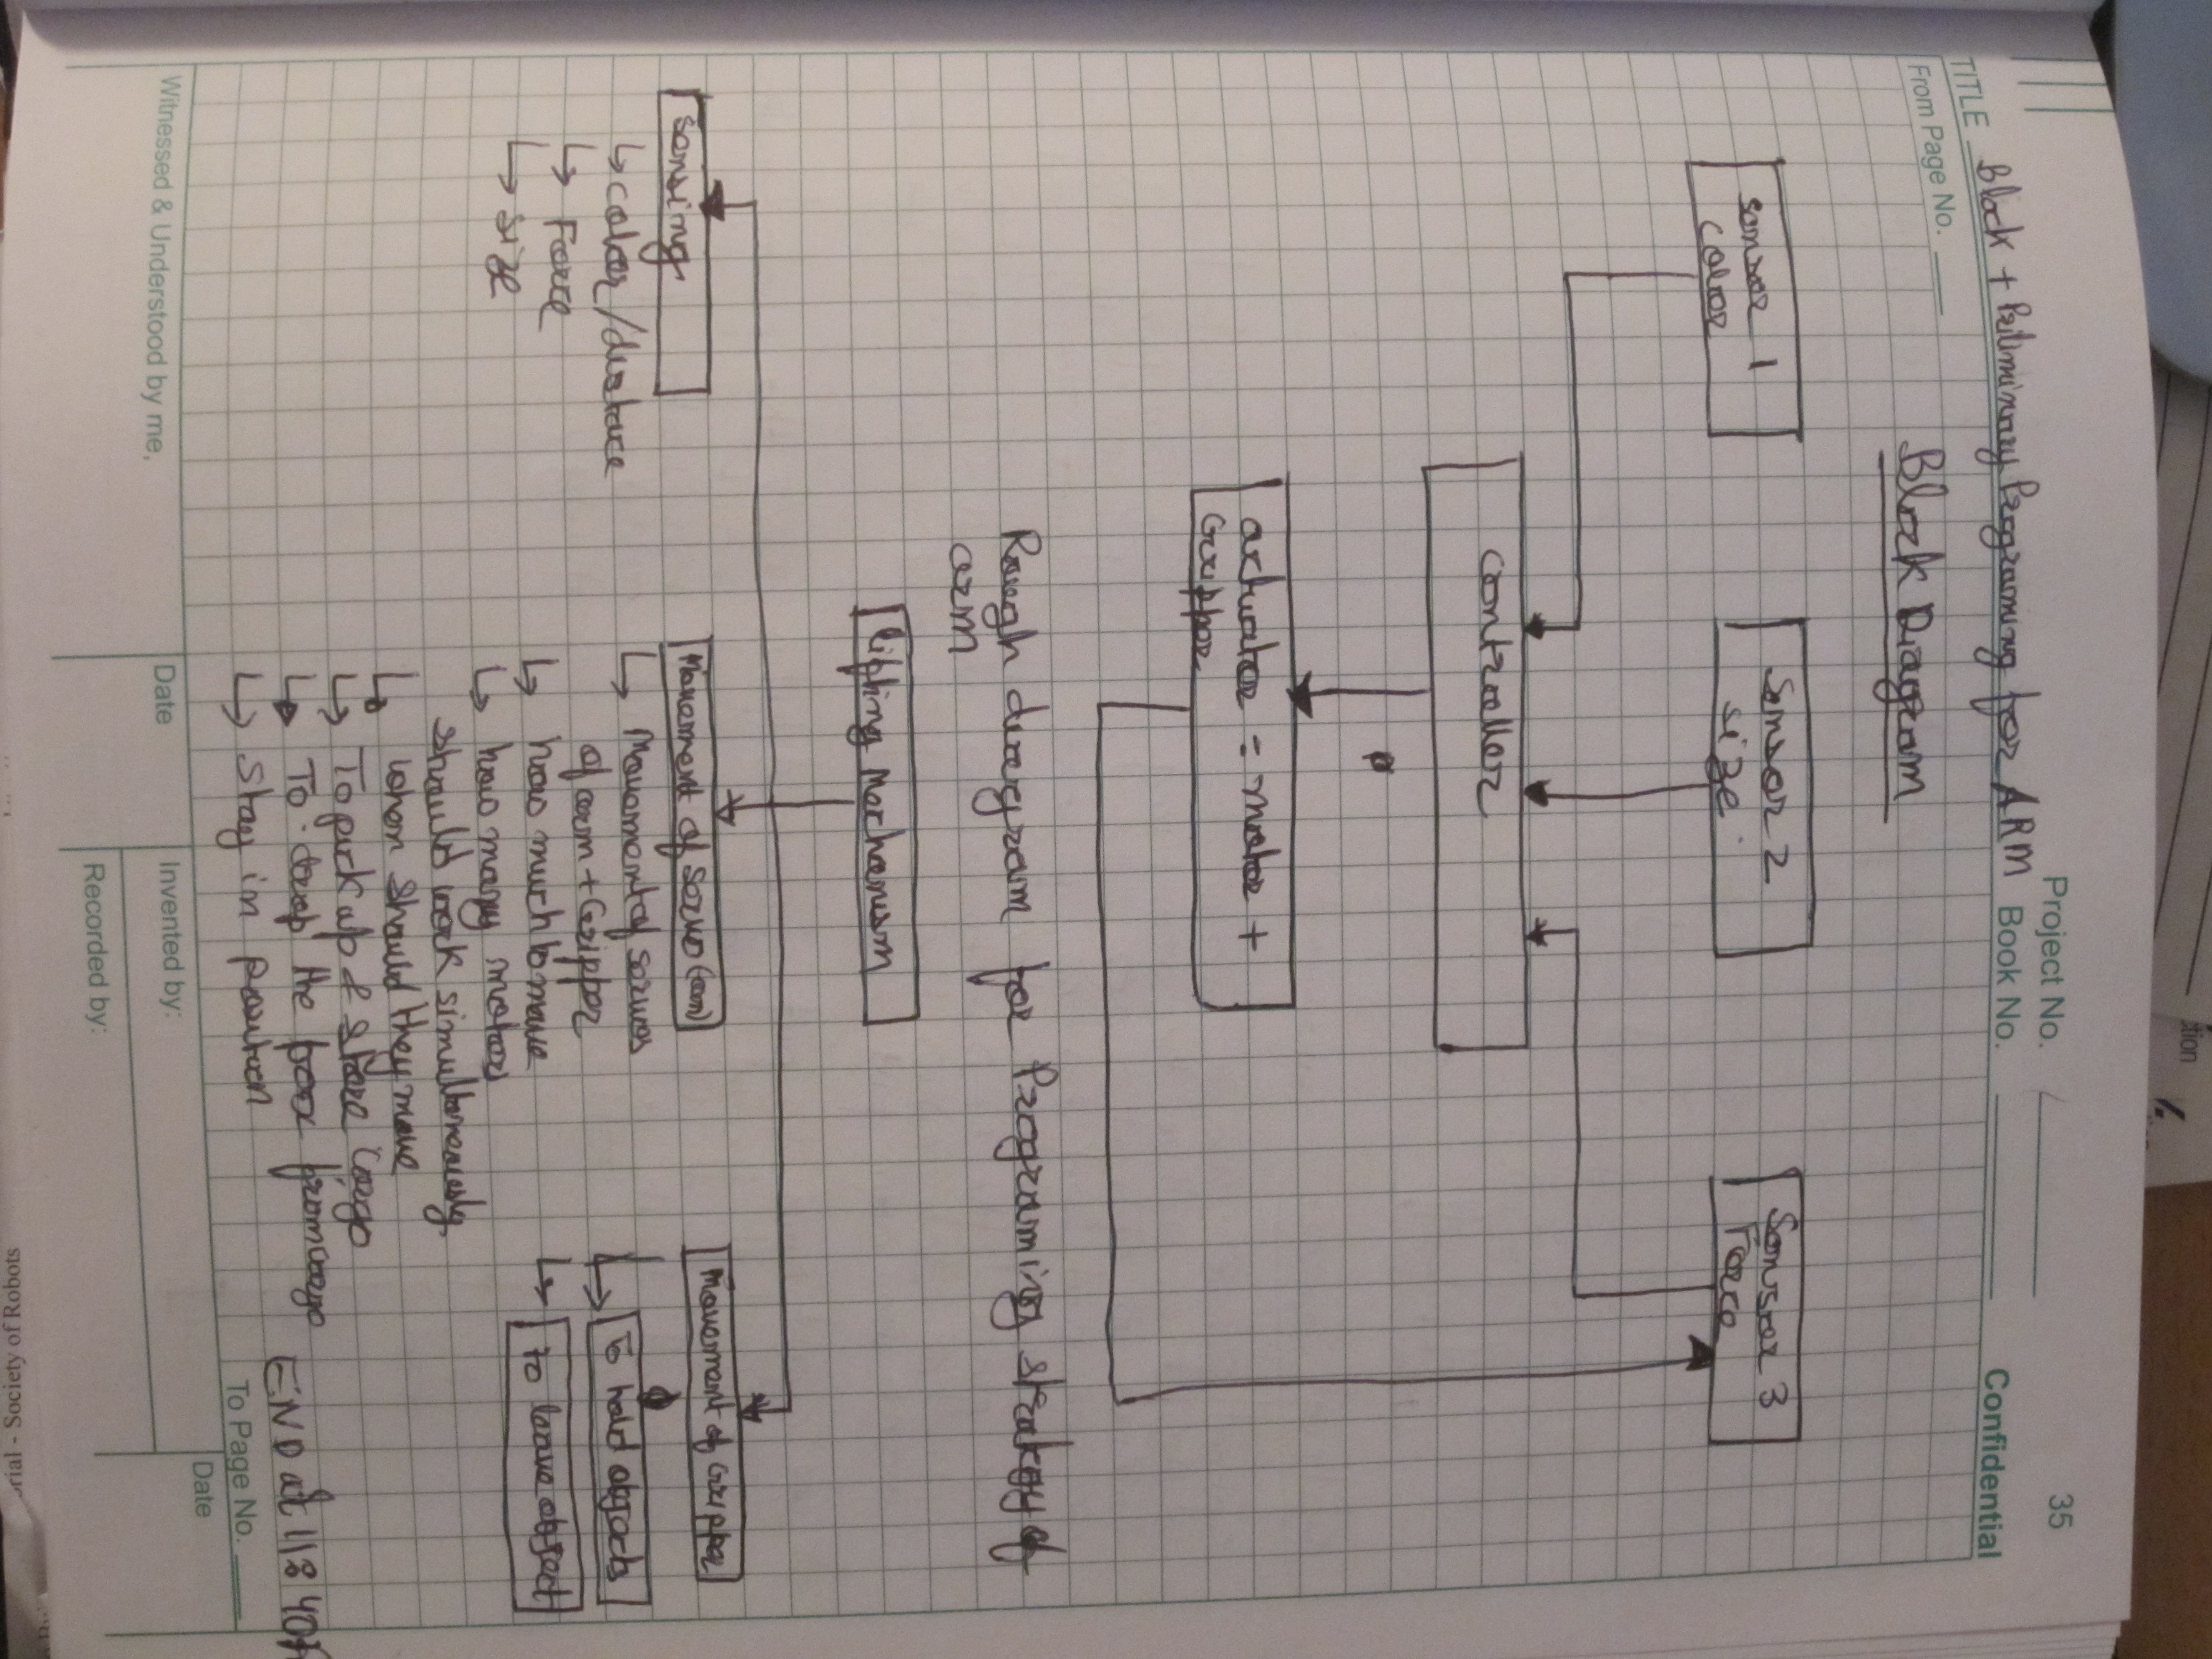 Project No.
35
TITLE Block + Priliminary Programing for ARM Book No.
Confidential
From Page No.
Block Diagram
sensor 1
color
Sensor 2
size
Sensor 3
Force
Controller
actuator = motor +
Gripper
Rough diagram for Programing strategy of
arm
lifting Mechanism
sensing
↳ color/distance
↳ Force
↳ size
Movement of servo (arm)
↳ Movement of servos
of arm + Gripper
↳ how much to move
↳ how many motors
should work simultaneously
↳ when should they move
↳ To pick up & store cargo
↳ To drop the box from cargo
↳ Stay in position
Movement of Gripper
↳ To hold objects
↳ to leave object
END at 118
To Page No.
Witnessed & Understood by me,
Date
Invented by:
Date
Recorded by:
rial - Society of Robots
tion